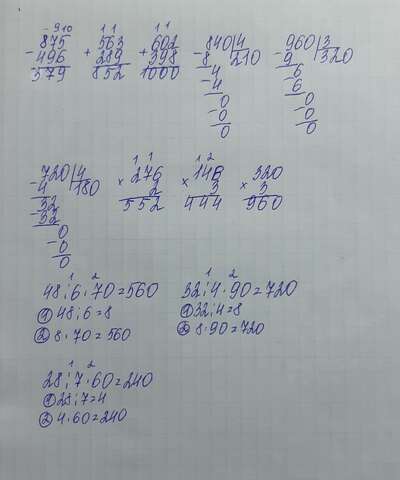 - 9 10 1 1 1 1
- 875 + 563 + 602 - 840 | 4 - 960 | 3
496 289 398 8 210 9 320
379 852 1000 - 4 - 6
4 6
0 0
- 0 - 0
0 0
- 720 | 4 × 276 × 148 × 320
4 180 2 3 3
- 32 552 444 960
32
0
- 0
0
48 : 6 · 70 = 560 32 : 4 · 90 = 720
① 48 : 6 = 8 ① 32 : 4 = 8
② 8 · 70 = 560 ② 8 · 90 = 720
28 : 7 · 60 = 240
① 28 : 7 = 4
② 4 · 60 = 240